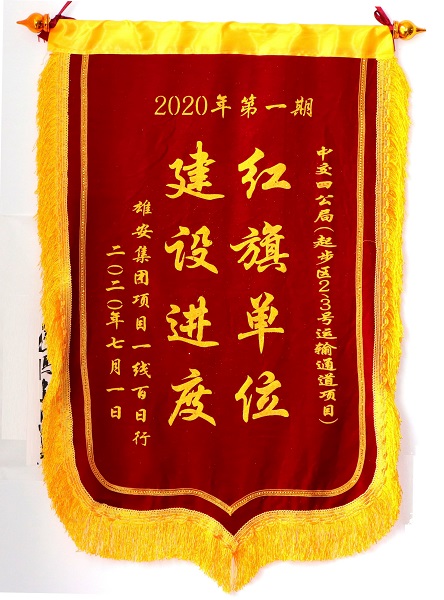 2020年第一期
中交四公局(起步区2-3号运输通道项目)
红旗单位
建设进度
雄安集团项目一线百日行
二〇二〇年七月一日